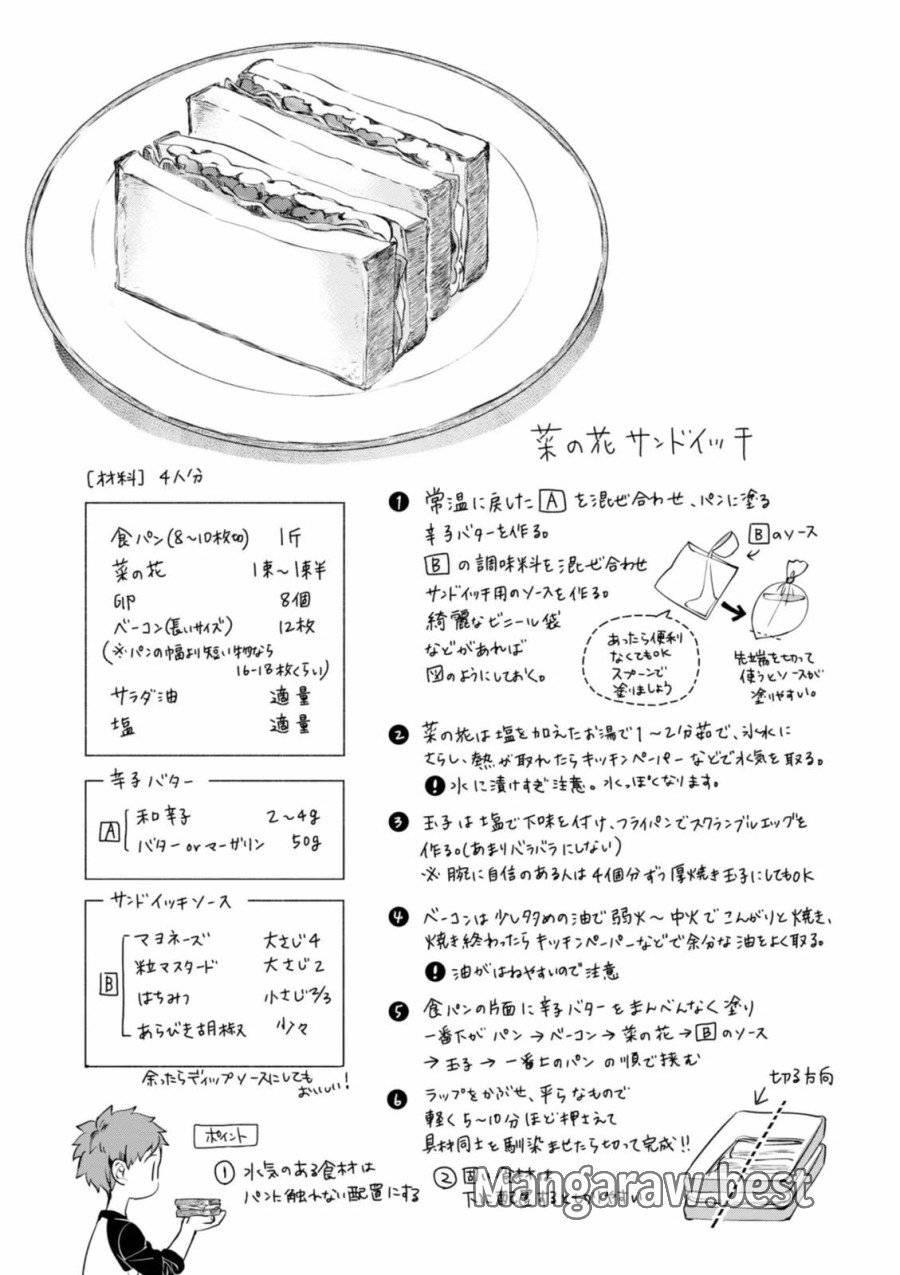 菜の花サンドイッチ
[材料] 4人分
食パン(8～10枚切) 1斤
菜の花 1束～1束半
卵 8個
ベーコン(長いサイズ) 12枚
(※パンの幅より短い物なら
16-18枚くらい)
サラダ油 適量
塩 適量
辛子バター
A
和辛子 2～4g
バターorマーガリン 50g
サンドイッチソース
B
マヨネーズ 大さじ4
粒マスタード 大さじ2
はちみつ 小さじ2/3
あらびき胡椒 少々
余ったらディップソースにしても
おいしい!
❶ 常温に戻した A を混ぜ合わせ、パンに塗る
辛子バターを作る。
B の調味料を混ぜ合わせ
サンドイッチ用のソースを作る。
綺麗なビニール袋
などがあれば
図のようにしておく。
Bのソース
あったら便利
なくてもOK
スプーンで
塗りましょう
先端を切って
使うとソースが
塗りやすい。
❷ 菜の花は塩を加えたお湯で1～2分茹で、氷水に
さらし、熱が取れたらキッチンペーパーなどで水気を取る。
! 水に漬けすぎ注意。水っぽくなります。
❸ 玉子は塩で下味を付け、フライパンでスクランブルエッグを
作る。(あまりバラバラにしない)
※腕に自信のある人は4個分ずつ厚焼き玉子にしてもOK
❹ ベーコンは少し多めの油で弱火～中火でこんがりと焼き、
焼き終わったらキッチンペーパーなどで余分な油をよく取る。
! 油がはねやすいので注意
❺ 食パンの片面に辛子バターをまんべんなく塗り
一番下がパン→ベーコン→菜の花→Bのソース
→玉子→一番上のパンの順で挟む
❻ ラップをかぶせ、平らなもので
軽く5～10分ほど押さえて
具材同士を馴染ませたら切って完成!!
切る方向
ポイント
① 水気のある食材は
パンに触れない配置にする
②
Mangaraw.best